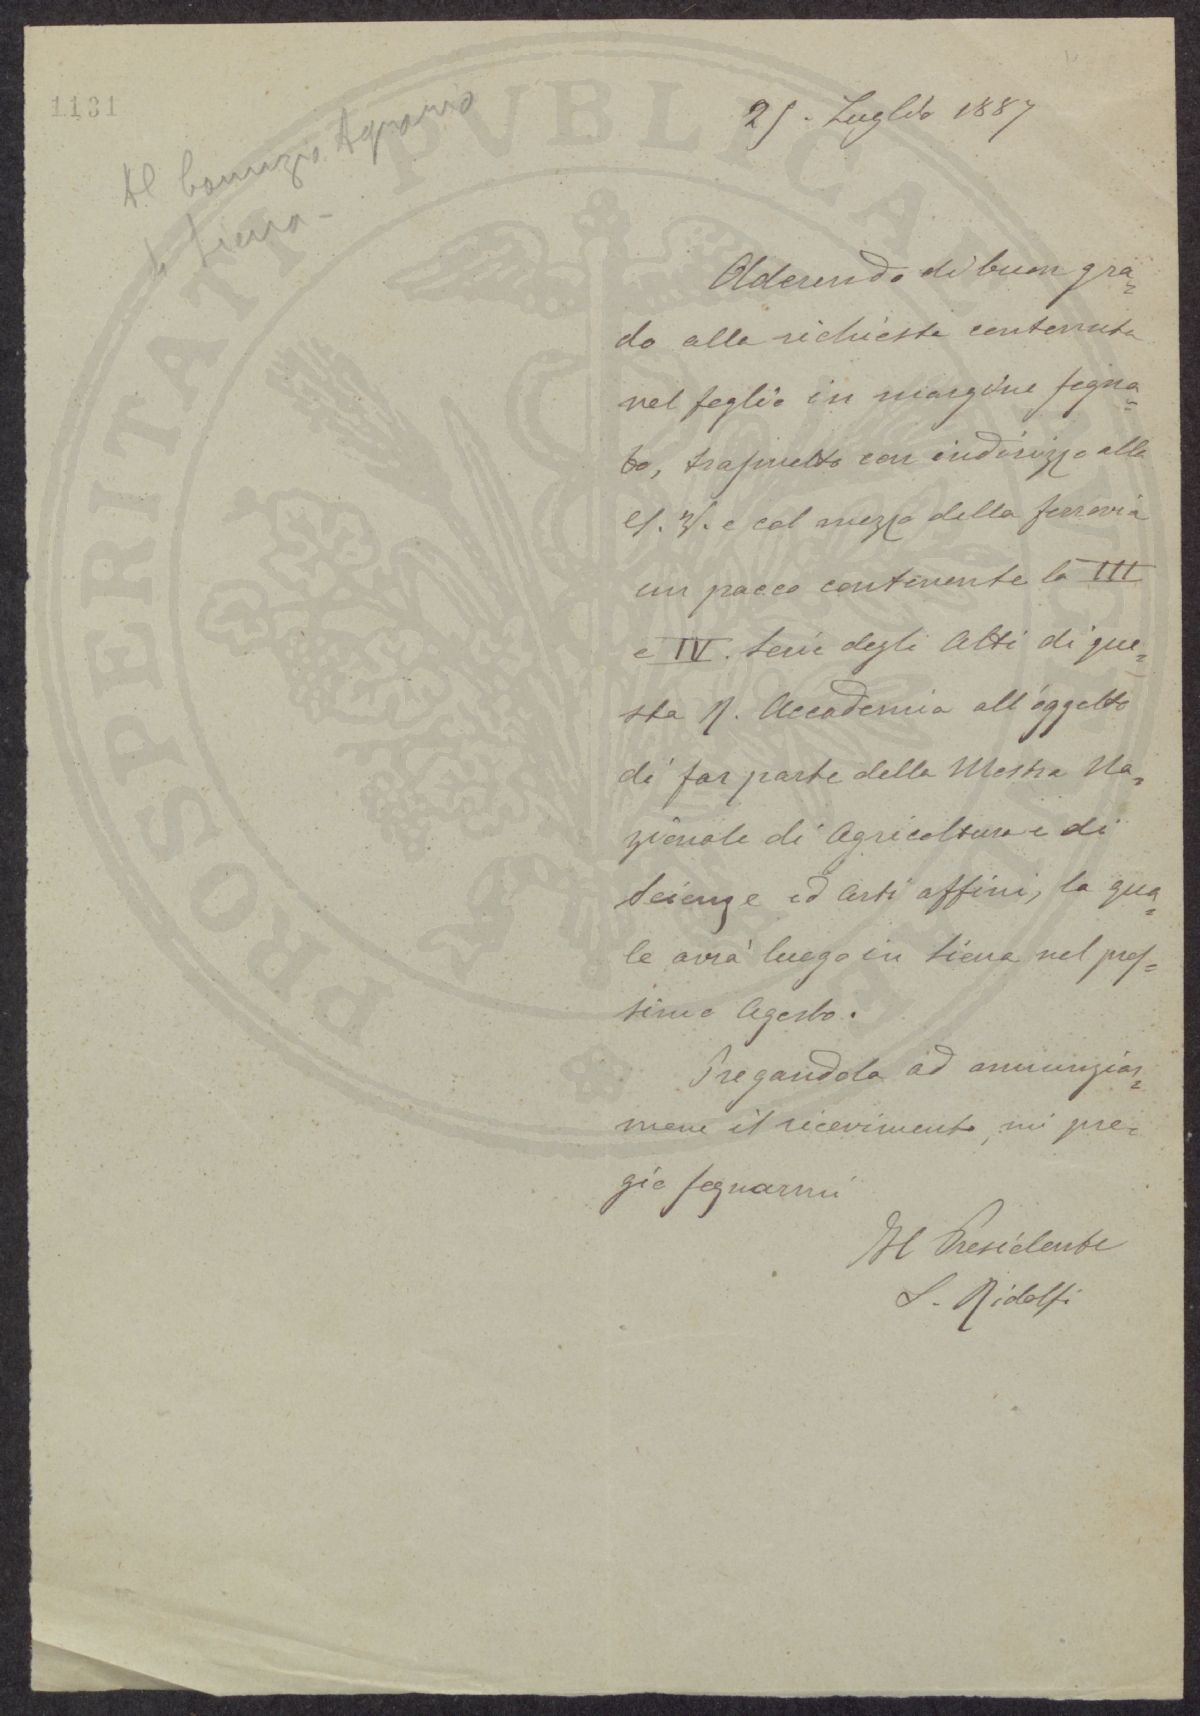 1131
Al Comizio Agrario
di Siena -
25. Luglio 1887
Aderendo di buon gra=
do alla richiesta contenuta
nel foglio in margine segna=
to, trasmetto con indirizzo alla
S. V. e col mezzo della ferrovia
un pacco contenente la III
e IV. Serie degli Atti di que=
sta R. Accademia all'oggetto
di far parte della Mostra Na=
zionale di Agricoltura e di
Scienze ed Arti affini, la qua=
le avrà luogo in Siena nel pros=
simo Agosto.
Pregandola ad annunziar=
mene il ricevimento, mi pre=
gio segnarmi
Il Presidente
L. Ridolfi
PROSPERITATI PVBLICAE